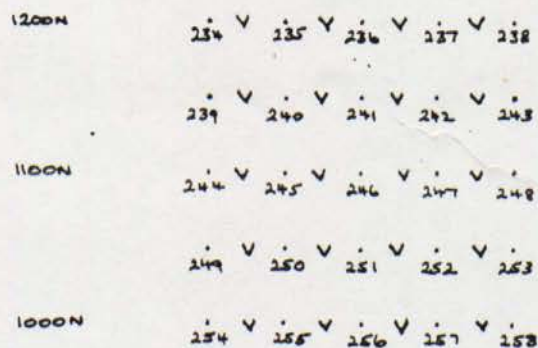 1200N 234 V 235 V 236 V 237 V 238
239 V 240 V 241 V 242 V 243
1100N 244 V 245 V 246 V 247 V 248
249 V 250 V 251 V 252 V 253
1000N 254 V 255 V 256 V 257 V 258